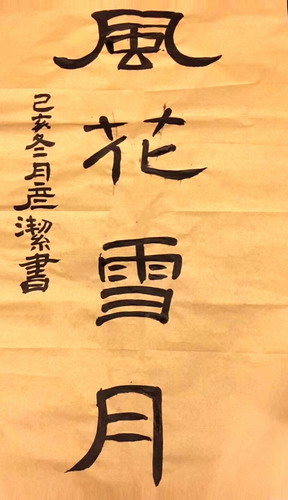 風花雪月
己亥冬二月彦潔書